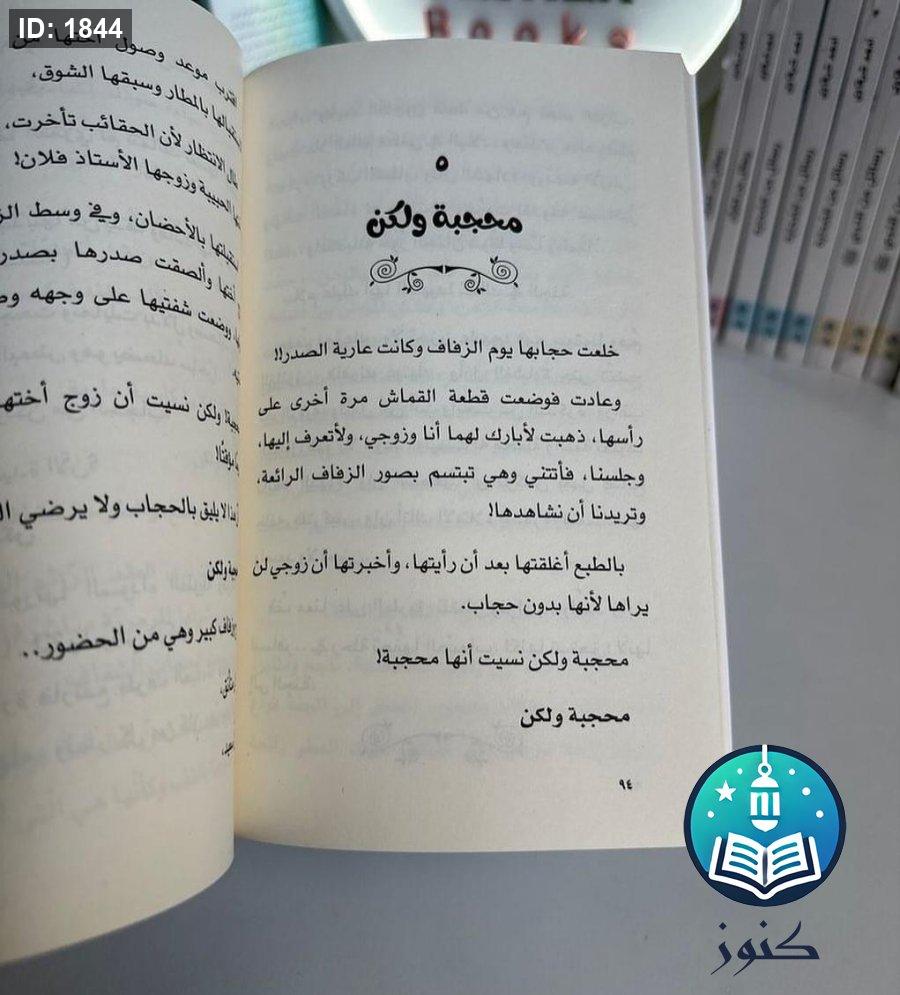 ID: 1844
Books
٥
محجبة ولكن
خلعت حجابها يوم الزفاف وكانت عارية الصدر!!
وعادت فوضعت قطعة القماش مرة أخرى على
رأسها، ذهبت لأبارك لهما أنا وزوجي، ولأتعرف إليها،
وجلسنا، فأتتني وهي تبتسم بصور الزفاف الرائعة،
وتريدنا أن نشاهدها!
بالطبع أغلقتها بعد أن رأيتها، وأخبرتها أن زوجي لن
يراها لأنها بدون حجاب.
محجبة ولكن نسيت أنها محجبة!
محجبة ولكن
٩٤
اقترب موعد وصول أختها من
بالمطار وسبقها الشوق،
الانتظار لأن الحقائب تأخرت،
الحبيبة وزوجها الأستاذ فلان!
بالأحضان، وفي وسط
وألصقت صدرها بصدر
ووضعت شفتيها على وجهه
ولكن نسيت أن زوج أختها
مؤقتًا!
لا يليق بالحجاب ولا يرضي
ولكن
كبير وهي من الحضور..
كنوز